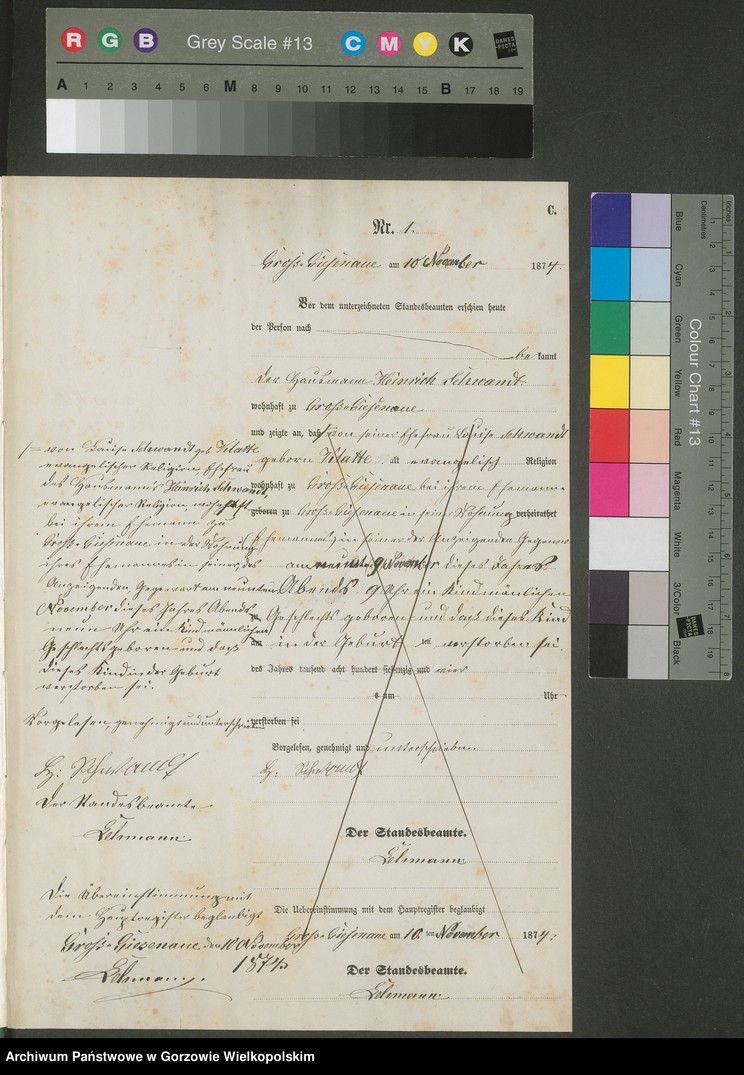 R G B Grey Scale #13 C M Y K DANES-PICTA.COM
A 1 2 3 4 5 6 M 8 9 10 11 12 13 14 15 B 17 18 19
C.
Nr. 1.
am 10 November 1874.
Vor dem unterzeichneten Standesbeamten erschien heute
der Persönlichkeit nach
be kannt
der Hausmann Heinrich Schwandt
wohnhaft zu
und zeigte an, daß von seiner Ehefrau Louise Schwandt
geborn Klatte alt evangelisch Religion
wohnhaft zu bei ihrem Ehemanne
geboren zu in seiner Wohnung verheirathet
Ehemannes in seiner des Anzeigenden Gegenwart
am neunten November dieses Jahres
Abends 9 Uhr ein Kind männlichen
zu Geschlechts geboren und daß dieses Kind
am in der Geburt ten verstorben sei.
des Jahres tausend acht hundert siebenzig und vier
um Uhr
verstorben sei
Vorgelesen, genehmigt und unterschrieben
H. Schwandt
Der Standesbeamte.
Lehmann
Die Uebereinstimmung mit dem Hauptregister beglaubigt
am 10 ten November 1874.
Der Standesbeamte.
Lehmann
von Louise Schwandt geb Klatte
evangelischer Religion, Ehefrau
des Hausmanns Heinrich Schwandt,
evangelischer Religion wohnhaft
bei ihrem Ehemann zu
in der Wohnung
ihres Ehemannes in seiner des
Anzeigenden Gegenwart am neunten
November dieses Jahres Abends
neun Uhr ein Kind männlichen
Geschlechts geboren und daß
dieses Kind in der Geburt
verstorben sei.
Vorgelesen, genehmigt und unterschrieben
H: Schwandt
Der Standesbeamte
Lehmann
Die Übereinstimmung mit
dem Hauptregister beglaubigt
den 10 November
1874.
Lehmann
Inches 1 2 3 4 5 6 7 8
Centimetres 1 2 3 4 5 6 7 8 9 10 11 12 13 14 15 16 17 18 19
Colour Chart #13
Blue
Cyan
Green
Yellow
Red
Magenta
White
3/Color
Black
DANES-PICTA.COM
Archiwum Państwowe w Gorzowie Wielkopolskim